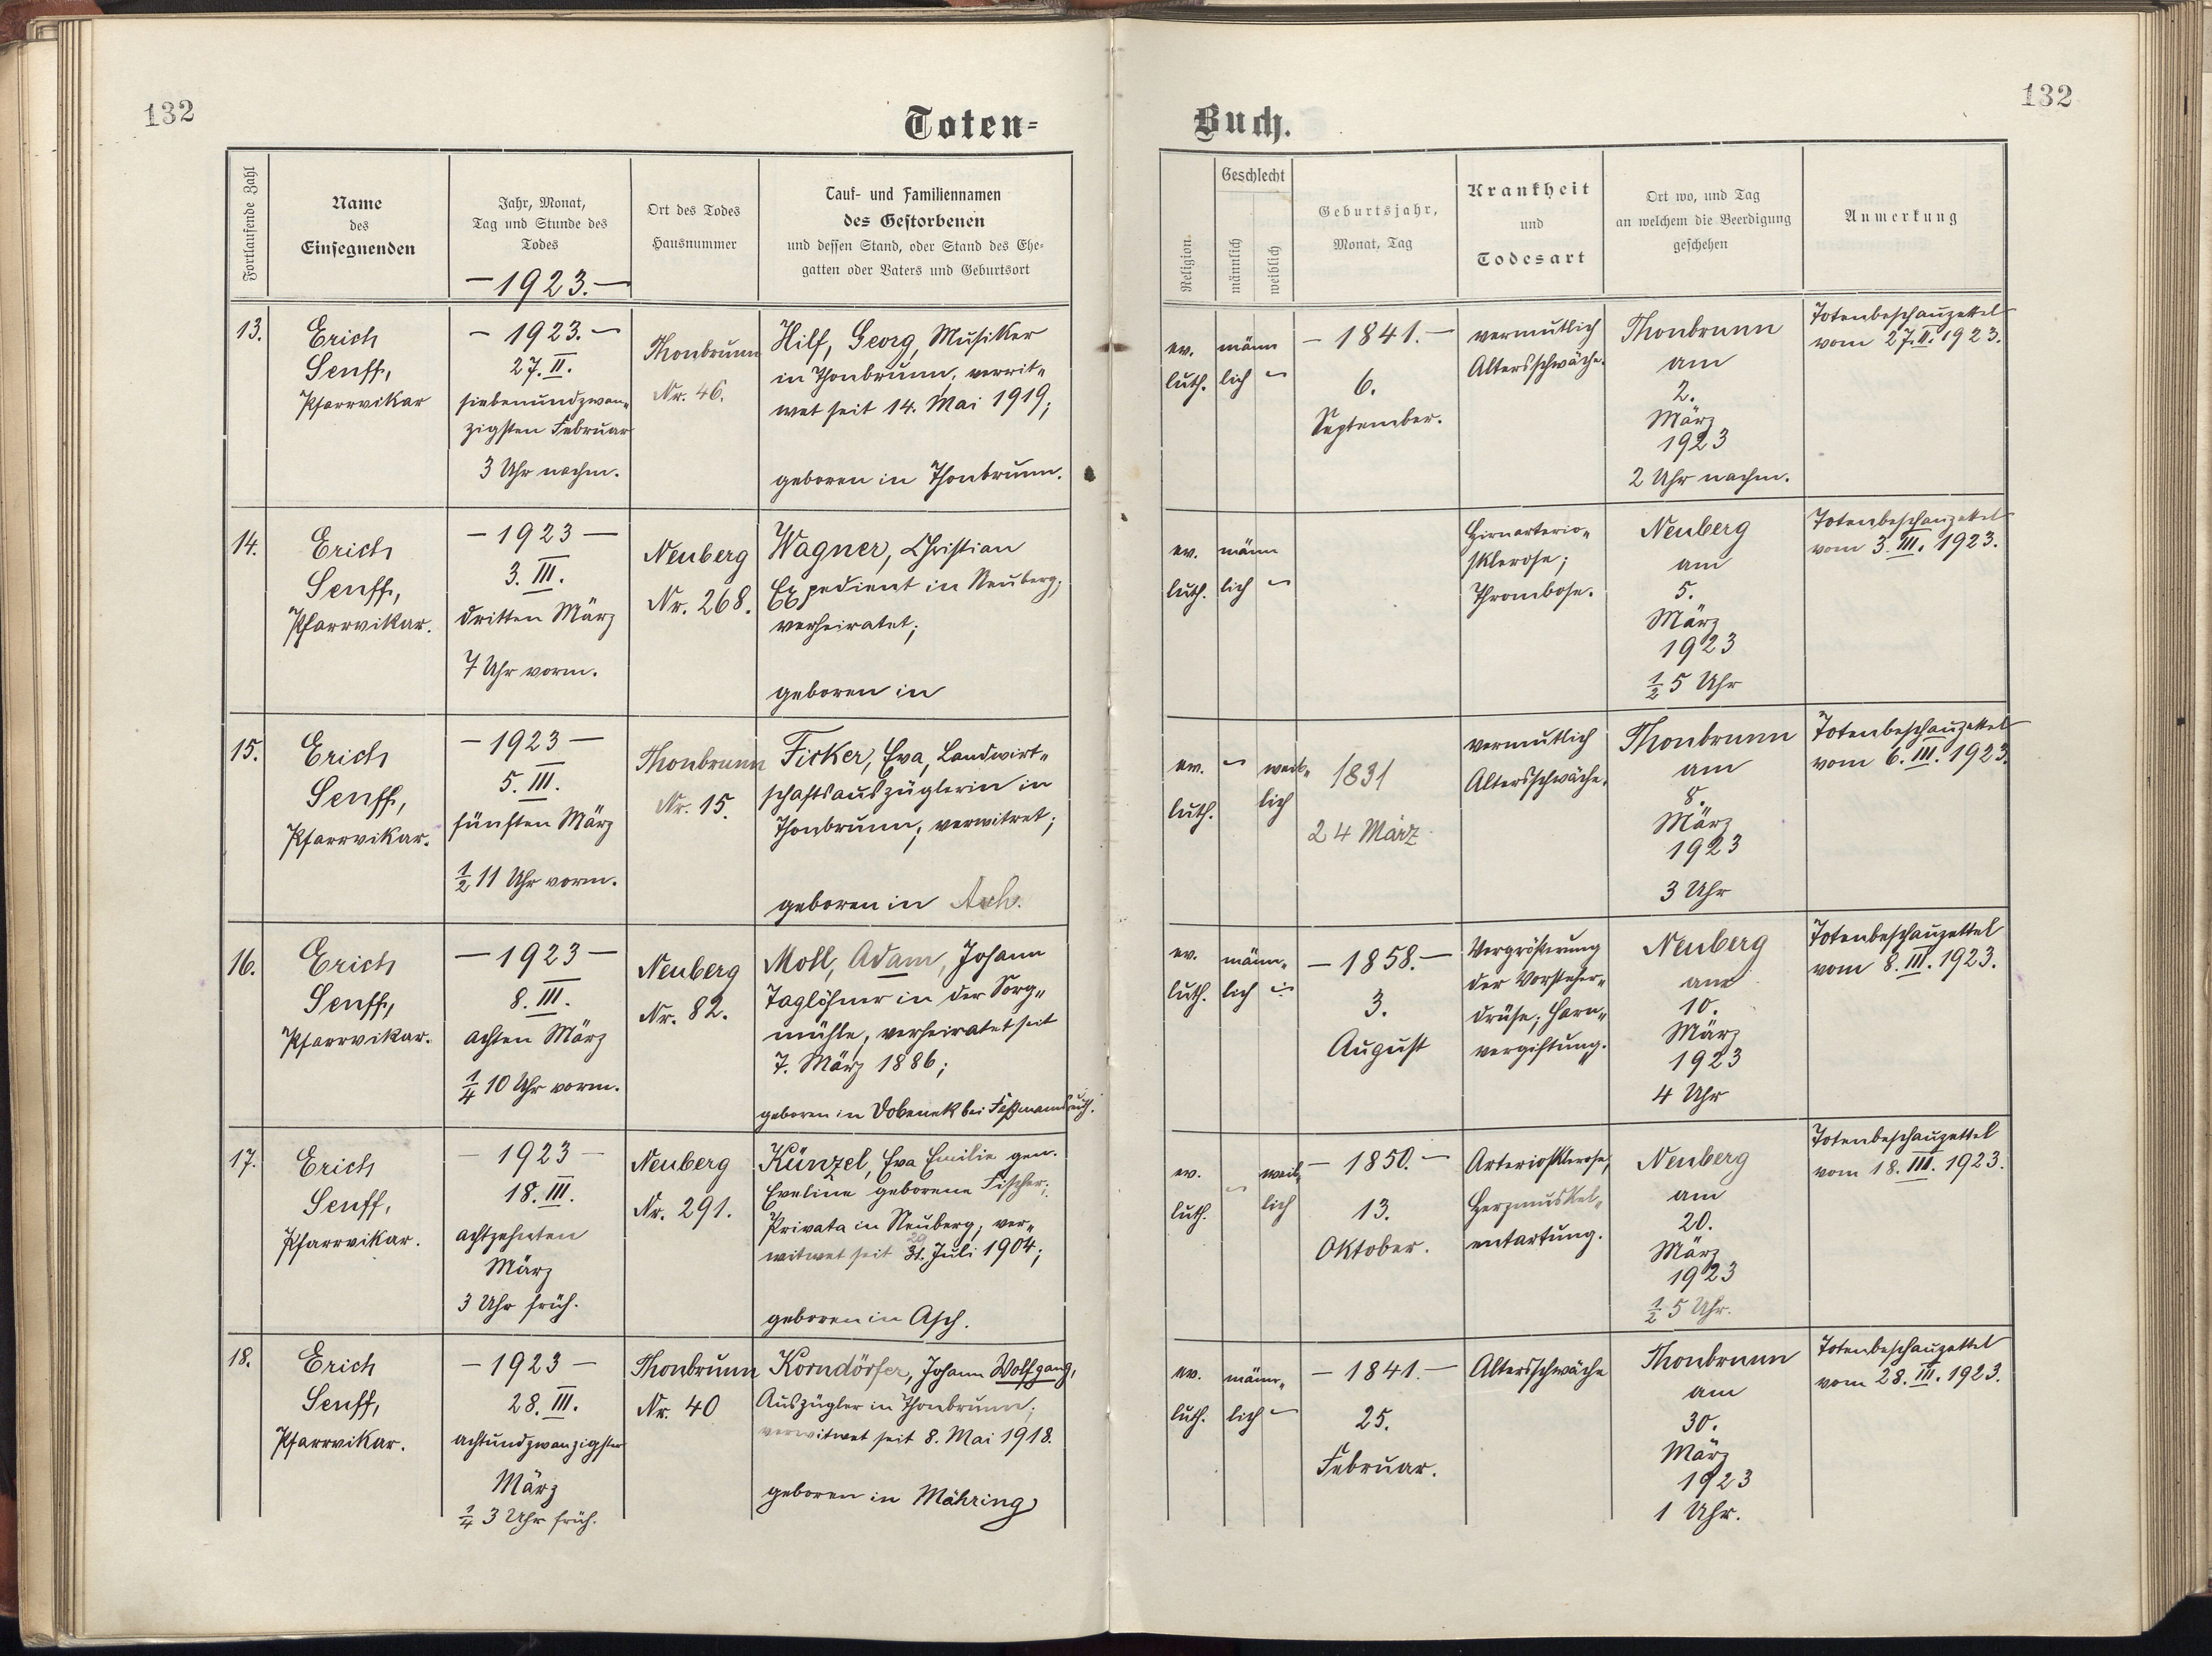 132
Toten-
Buch.
132
Fortlaufende Zahl
Name
des
Einsegnenden
Jahr, Monat,
Tag und Stunde des
Todes
— 1923. —
Ort des Todes
Hausnummer
Tauf- und Familiennamen
des Gestorbenen
und dessen Stand, oder Stand des Ehe-
gatten oder Vaters und Geburtsort
Religion
Geschlecht
männlich
weiblich
Geburtsjahr,
Monat, Tag
Krankheit
und
Todesart
Ort wo, und Tag
an welchem die Beerdigung
geschehen
Anmerkung
13.
Erich
Senff,
Pfarrvikar
— 1923. —
27. II.
siebenundzwan„
zigsten Februar
3 Uhr nachm.
Thonbrunn
Nr. 46.
Hilf, Georg, Musiker
in Thonbrunn, verwit„
wet seit 14. Mai 1919;
geboren in Thonbrunn.
ev.
luth.
männ
lich
— 1841. —
6.
September.
vermutlich
Altersschwäche.
Thonbrunn
am
2.
März
1923
2 Uhr nachm.
Totenbeschauzettel
vom 27. II. 1923.
14.
Erich
Senff,
Pfarrvikar.
— 1923 —
3. III.
dritten März
7 Uhr vorm.
Neuberg
Nr. 268.
Wagner, Christian
Expedient in Neuberg,
verheiratet;
geboren in
ev.
luth.
männ
lich
Hirnarterio„
sklerose;
Thrombose.
Neuberg
am
5.
März
1923
½ 5 Uhr
Totenbeschauzettel
vom 3. III. 1923.
15.
Erich
Senff,
Pfarrvikar.
— 1923 —
5. III.
fünften März
½ 11 Uhr vorm.
Thonbrunn
Nr. 15.
Ficker, Eva, Landwirt„
schaftsauszüglerin in
Thonbrunn; verwitwet;
geboren in Asch.
ev.
luth.
weib„
lich
1831
24 März
vermutlich
Altersschwäche.
Thonbrunn
am
8.
März
1923
3 Uhr
Totenbeschauzettel
vom 6. III. 1923.
16.
Erich
Senff,
Pfarrvikar.
— 1923 —
8. III.
achten März
¼ 10 Uhr vorm.
Neuberg
Nr. 82.
Moll, Adam, Johann
Taglöhner in der Sorg„
mühle, verheiratet seit
7. März 1886;
geboren in Dobenek bei Faßmannsreuth.
ev.
luth.
männ„
lich
— 1858. —
3.
August
Vergrößerung
der Vorsteher„
drüse; Harn„
vergiftung.
Neuberg
am
10.
März
1923
4 Uhr
Totenbeschauzettel
vom 8. III. 1923.
17.
Erich
Senff,
Pfarrvikar.
— 1923 —
18. III.
achtzehnten
März
3 Uhr früh.
Neuberg
Nr. 291.
Künzel, Eva Emilie gen.
Eveline geborene Fischer;
Privata in Neuberg, ver„
29
witwet seit 31. Juli 1904;
geboren in Asch.
ev.
luth.
weib„
lich
— 1850. —
13.
Oktober.
Arteriosklerose,
Herzmuskel„
entartung.
Neuberg
am
20.
März
1923
½ 5 Uhr.
Totenbeschauzettel
vom 18. III. 1923.
18.
Erich
Senff,
Pfarrvikar.
— 1923 —
28. III.
achtundzwanzigsten
März
¼ 3 Uhr früh.
Thonbrunn
Nr. 40
Korndörfer, Johann Wolfgang,
Auszügler in Thonbrunn;
verwitwet seit 8. Mai 1918.
geboren in Mähring
ev.
luth.
männ„
lich
— 1841. —
25.
Februar.
Altersschwäche
Thonbrunn
am
30.
März
1923
1 Uhr.
Totenbeschauzettel
vom 28. III. 1923.